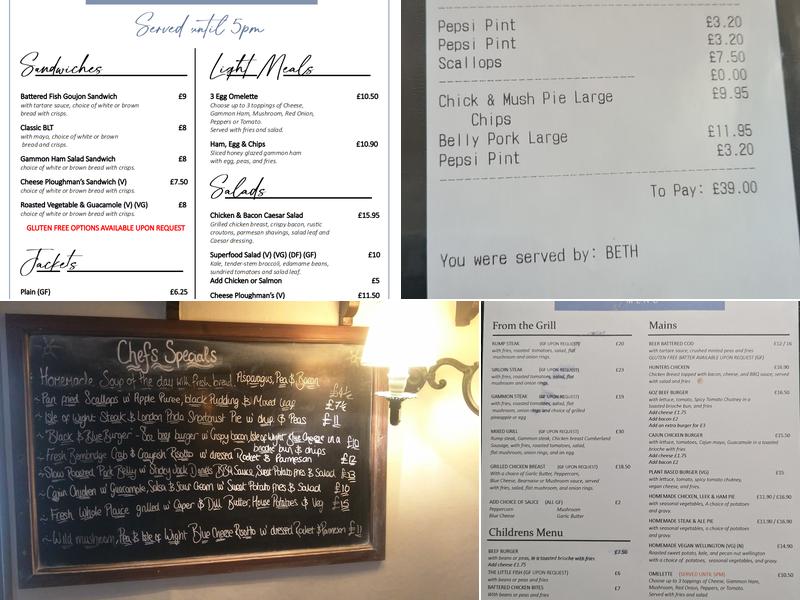 Served until 5pm
Sandwiches
Battered Fish Goujon Sandwich £9
with tartare sauce, choice of white or brown
bread with crisps.
Classic BLT £8
with mayo, choice of white or brown
bread and crisps.
Gammon Ham Salad Sandwich £8
choice of white or brown bread with crisps.
Cheese Ploughman's Sandwich (V) £7.50
choice of white or brown bread with crisps.
Roasted Vegetable & Guacamole (V) (VG) £8
choice of white or brown bread with crisps.
GLUTEN FREE OPTIONS AVAILABLE UPON REQUEST
Jackets
Plain (GF) £6.25
Light Meals
3 Egg Omelette £10.50
Choose up to 3 toppings of Cheese,
Gammon Ham, Mushroom, Red Onion,
Peppers or Tomato.
Served with fries and salad.
Ham, Egg & Chips £10.90
Sliced honey glazed gammon ham
with egg, peas, and fries.
Salads
Chicken & Bacon Caesar Salad £15.95
Grilled chicken breast, crispy bacon, rustic
croutons, parmesan shavings, salad leaf and
Caesar dressing.
Superfood Salad (V) (VG) (DF) (GF) £10
Kale, tender-stem broccoli, edamame beans,
sundried tomatoes and salad leaf.
Add Chicken or Salmon £5
Cheese Ploughman's (V) £11.50
Pepsi Pint £3.20
Pepsi Pint £3.20
Scallops £7.50
£0.00
Chick & Mush Pie Large £9.95
Chips
Belly Pork Large £11.95
Pepsi Pint £3.20
To Pay: £39.00
You were served by: BETH
Chef's Specials
Homemade Soup of the day with fresh bread. Asparagus, Pea & Bacon
~ Pan fried Scallops w Apple Puree, black Pudding & Mixed £7½
~ Isle of Wight Steak & London Porter Shortcrust Pie w chips & Peas £11
~ "Black & Blue Burger" - 5oz beef burger w Crispy bacon, Isle of Wight Blue Cheese in a £10
brioche bun & chips
~ Fresh Bembridge Crab & Crayfish Risotto w dressed Rocket & Parmesan £12
~ Slow Roasted Pork Belly w Sticky Jack Daniels BBQ Sauce, Sweet Potato fries & Salad £13
~ Cajun Chicken w Guacamole, Salsa & Sour Cream w Sweet Potato fries & Salad
~ Fresh Whole Plaice grilled w Caper & Dill Butter, House Potatoes & Veg
~ Wild mushroom, Pea & Isle of Wight Blue Cheese Risotto w dressed Rocket & Parmesan £11
From the Grill
RUMP STEAK (GF UPON REQUEST) £20
with fries, roasted tomatoes, salad, flat
mushroom and onion rings.
SIRLOIN STEAK (GF UPON REQUEST) £23
with fries, roasted tomatoes, salad, flat
mushroom and onion rings.
GAMMON STEAK (GF UPON REQUEST) £19
with fries, roasted tomatoes, salad, flat
mushroom, onion rings and choice of grilled
pineapple or egg
MIXED GRILL (GF UPON REQUEST) £30
Rump steak, Gammon steak, Chicken breast Cumberland
Sausage, with fries, roasted tomatoes, salad,
flat mushroom, onion rings, and an egg.
GRILLED CHICKEN BREAST (GF UPON REQUEST) £18.50
With a choice of Garlic Butter, Peppercorn,
Blue Cheese, Bearnaise or Mushroom sauce, served
with fries, salad, flat mushroom and onion rings.
ADD CHOICE OF SAUCE (ALL GF) £2
Peppercorn Mushroom
Blue Cheese Garlic Butter
Childrens Menu
BEEF BURGER £7.50
with beans or peas, in a toasted brioche with fries
Add cheese £1.75
THE LITTLE FISH (GF UPON REQUEST) £6
with beans or peas and fries
BATTERED CHICKEN BITES £7
with beans or peas and fries
Mains
BEER BATTERED COD £12 / 16
with tartare sauce, crushed minted peas and fries
GLUTEN FREE BATTER AVAILABLE UPON REQUEST (GF)
HUNTERS CHICKEN £16.90
Chicken breast topped with bacon, cheese, and BBQ sauce, served
with salad and fries
6OZ BEEF BURGER £16.50
with lettuce, tomato, Spicy Tomato Chutney in a
toasted brioche bun, and fries
Add cheese £1.75
Add bacon £2
Add an extra burger for £3
CAJUN CHICKEN BURGER £15.50
with lettuce, tomatoes, Cajun mayo, Guacamole in a toasted
brioche with fries
Add cheese £1.75
Add bacon £2
PLANT BASED BURGER (VG) £15
with lettuce, tomato, spicy tomato chutney,
vegan cheese, and fries.
HOMEMADE CHICKEN, LEEK & HAM PIE £11.90 / £16.90
with seasonal vegetables, A choice of potatoes
and gravy.
HOMEMADE STEAK & ALE PIE £11.90 / £16.90
with seasonal vegetables, a choice of potatoes
and gravy.
HOMEMADE VEGAN WELLINGTON (VG) (N) £14.90
Roasted sweet potato, kale, and pecan nut wellington
with a choice of potatoes, seasonal vegetables, and gravy.
OMELETTE (SERVED UNTIL 5PM) £10.50
Choose up to 3 toppings of Cheese, Gammon Ham,
Mushroom, Red Onion, Peppers, or Tomato.
Served with fries and salad